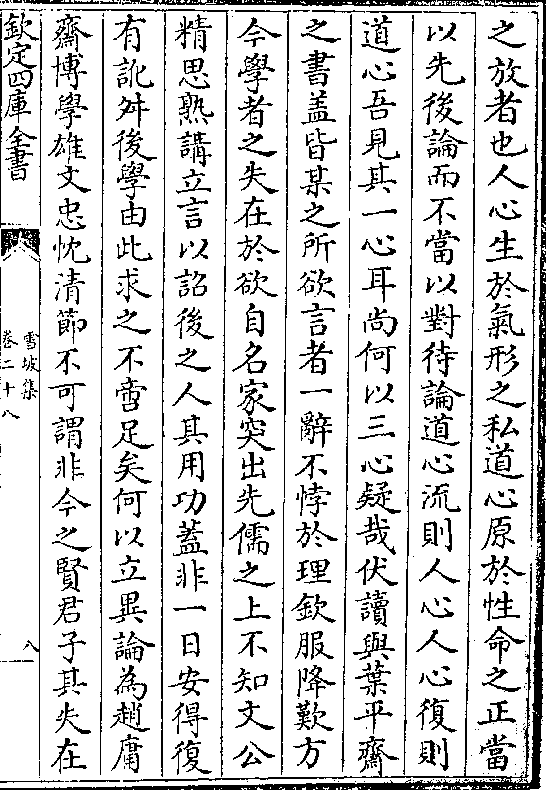 之放者也人心生於氣形之私道心原於性命之正當
以先後論而不當以對待論道心流則人心人心復則
道心吾見其一心耳尚何以三心疑哉伏讀與葉平齋
之書盖皆某之所欲言者一辭不悖於理欽服降歎方
今學者之失在於欲自名家突出先儒之上不知文公
精思熟講立言以詔後之人其用功蓋非一日安得復
有訛舛後學由此求之不啻足矣何以立異論為趙庸
齋博學雄文忠忱清節不可謂非今之賢君子其失在
欽定四庫全書
雪坡集
卷二十八
八